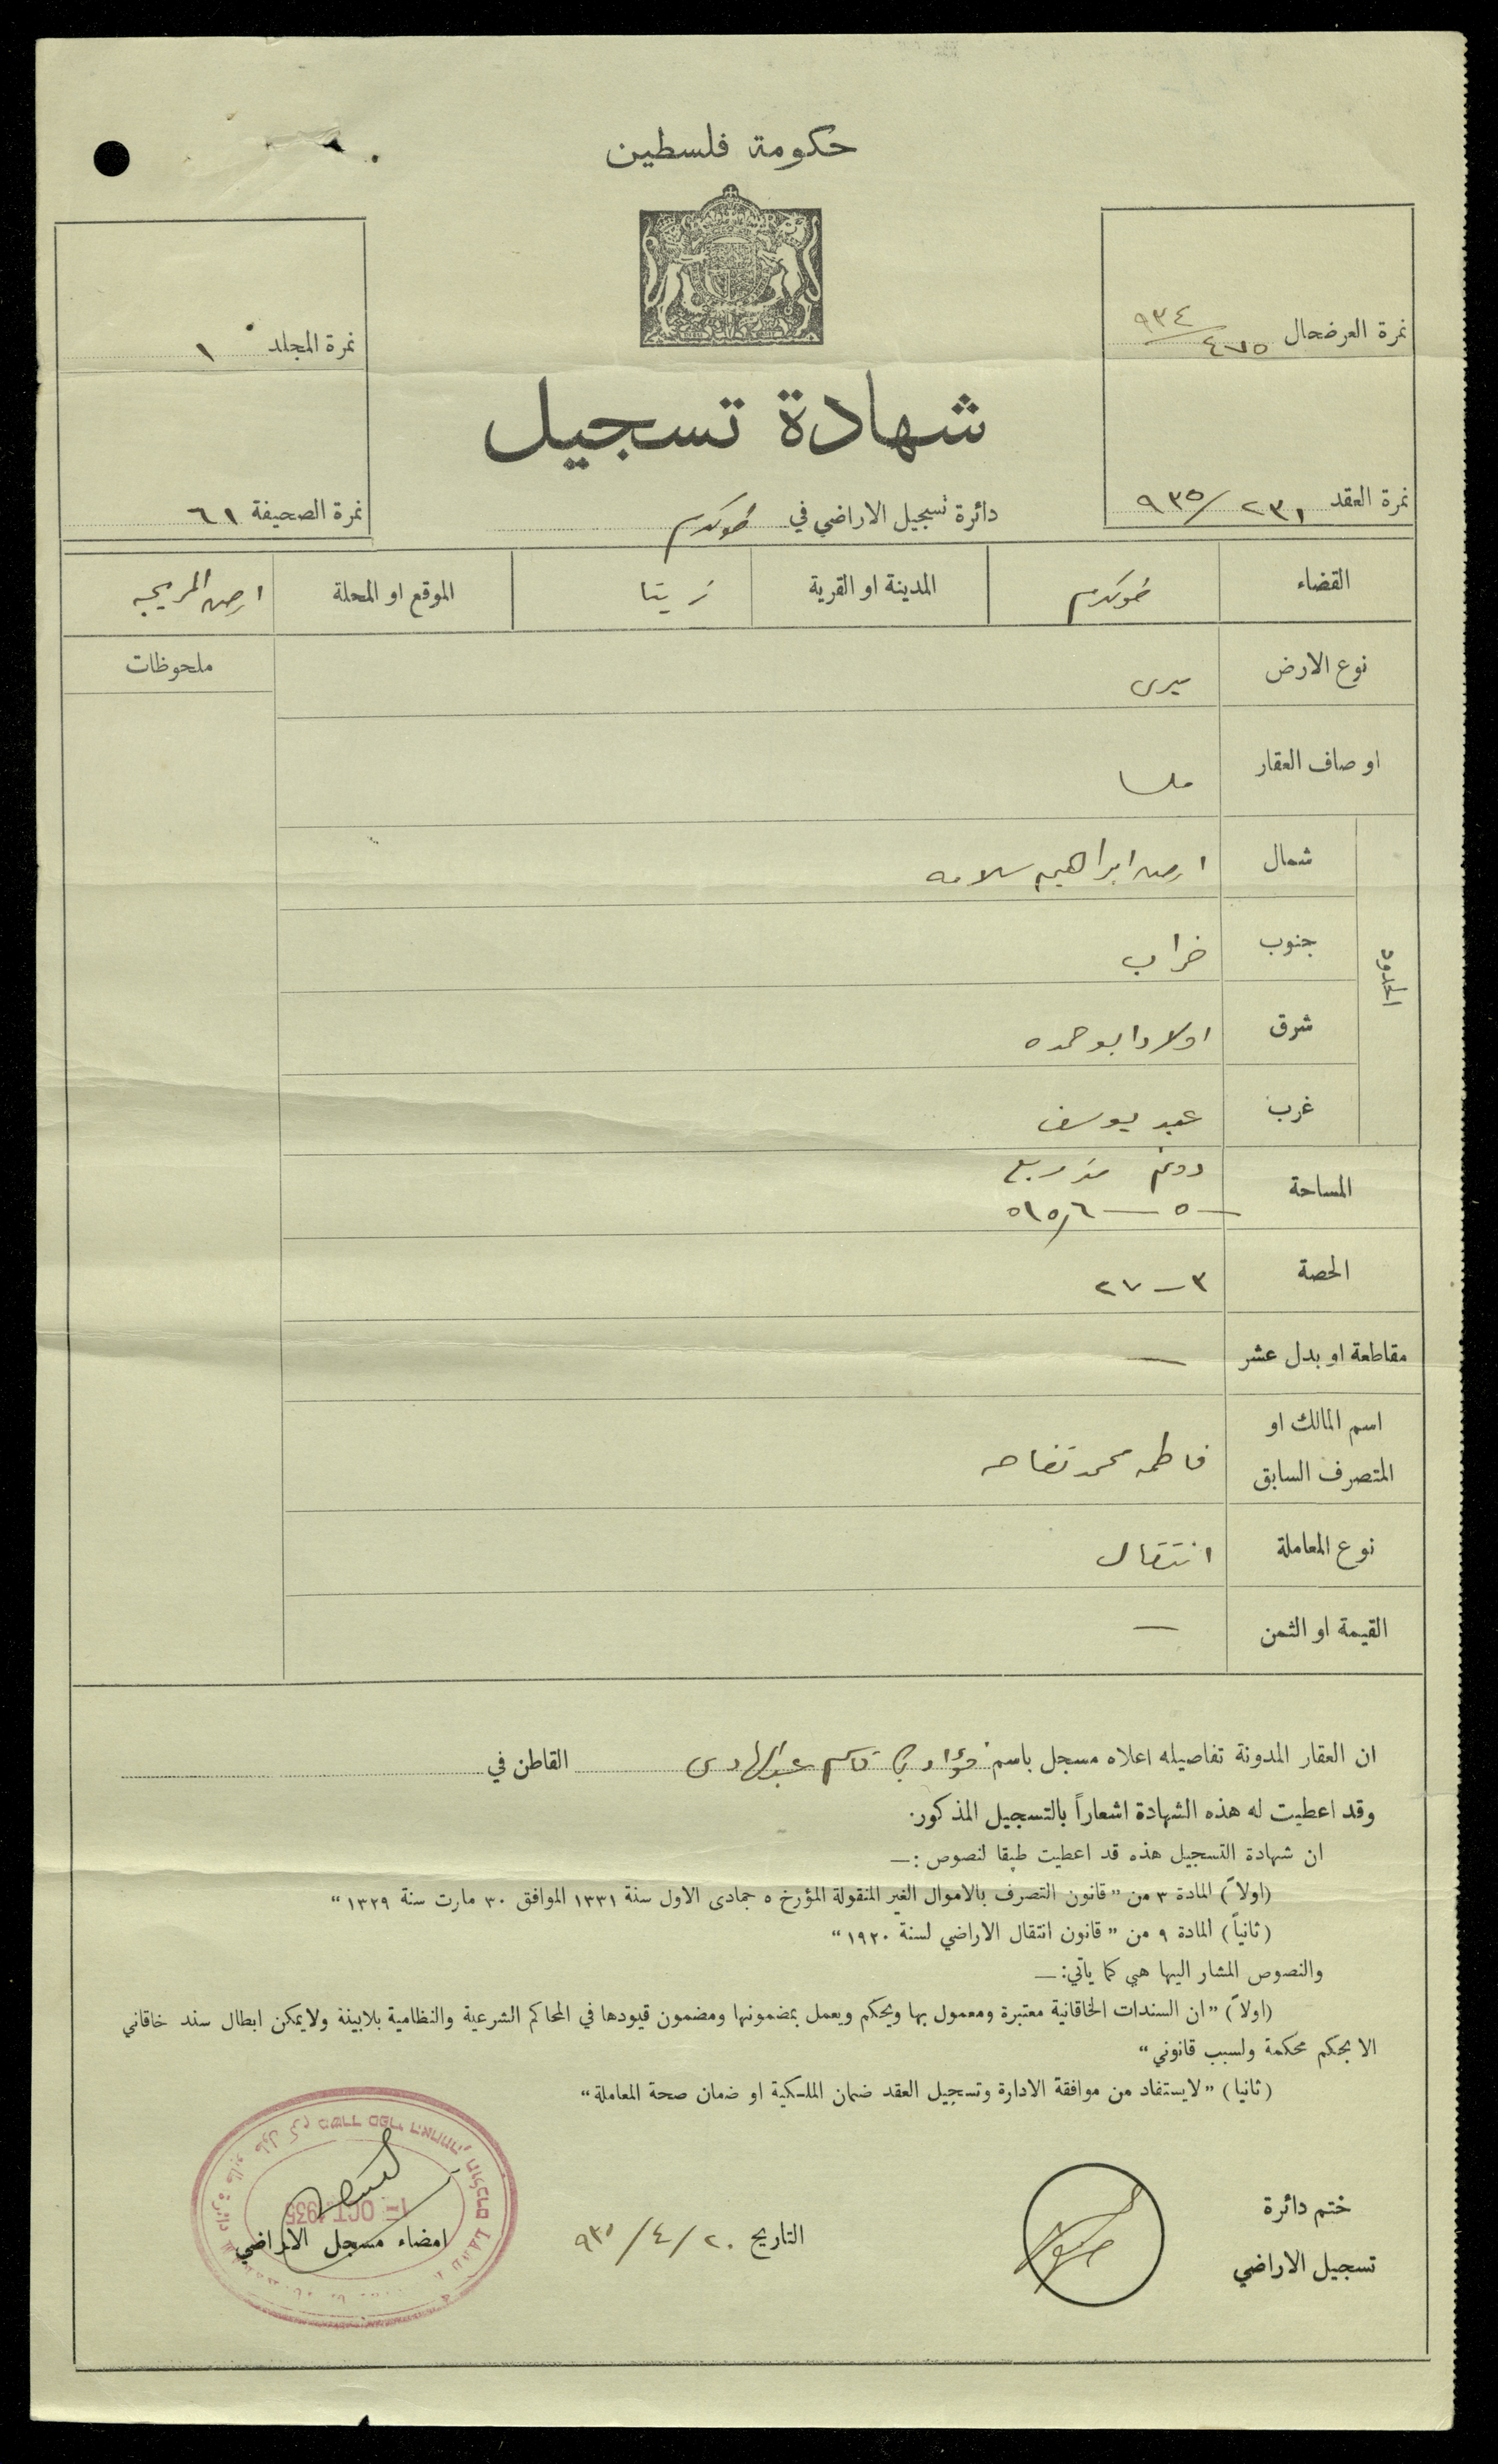 حكومة فلسطين
نمرة العرضحال ٩٣٤/٤٧٥
نمرة المجلد ١
شهادة تسجيل
نمرة العقد ٢٣١/٩٣٥
نمرة الصحيفة ٦١
دائرة تسجيل الاراضي في طولكرم
القضاء طولكرم المدينة او القرية زيتا الموقع او المحلة ارض المريجه
نوع الارض ميرى
ملحوظات
اوصاف العقار ملسا
الحدود
شمال ارض ابراهيم سلامه
جنوب خراب
شرق اولاد ابو حمده
غرب عبد يوسف
المساحة دونم متر مربع
— ٥ — ٥١٥,٦
الحصة ٣ — ٢٧
مقاطعة او بدل عشر —
اسم المالك او
المتصرف السابق فاطمه محمد تفاحه
نوع المعاملة انتقال
القيمة او الثمن —
ان العقار المدونة تفاصيله اعلاه مسجل باسم فؤاد قاسم عبد الهادى القاطن في
وقد اعطيت له هذه الشهادة اشعاراً بالتسجيل المذكور.
ان شهادة التسجيل هذه قد اعطيت طبقا لنصوص :—
(اولاً) المادة ٣ من "قانون التصرف بالاموال الغير المنقولة المؤرخ ٥ جمادى الاول سنة ١٣٣١ الموافق ٣٠ مارت سنة ١٣٢٩"
(ثانياً) المادة ٩ من "قانون انتقال الاراضي لسنة ١٩٢٠"
والنصوص المشار اليها هي كما يأتي:—
(اولاً) "ان السندات الخاقانية معتبرة ومعمول بها ويحكم ويعمل بمضمونها ومضمون قيودها في المحاكم الشرعية والنظامية بلابينة ولايمكن ابطال سند خاقاني
الا بحكم محكمة ولسبب قانوني"
(ثانيا) "لايستفاد من موافقة الادارة وتسجيل العقد ضمان الملكية او ضمان صحة المعاملة"
ختم دائرة
تسجيل الاراضي
التاريخ ٢٠/٤/٩٣٥
امضاء مسجل الاراضي
1 - OCT 1935